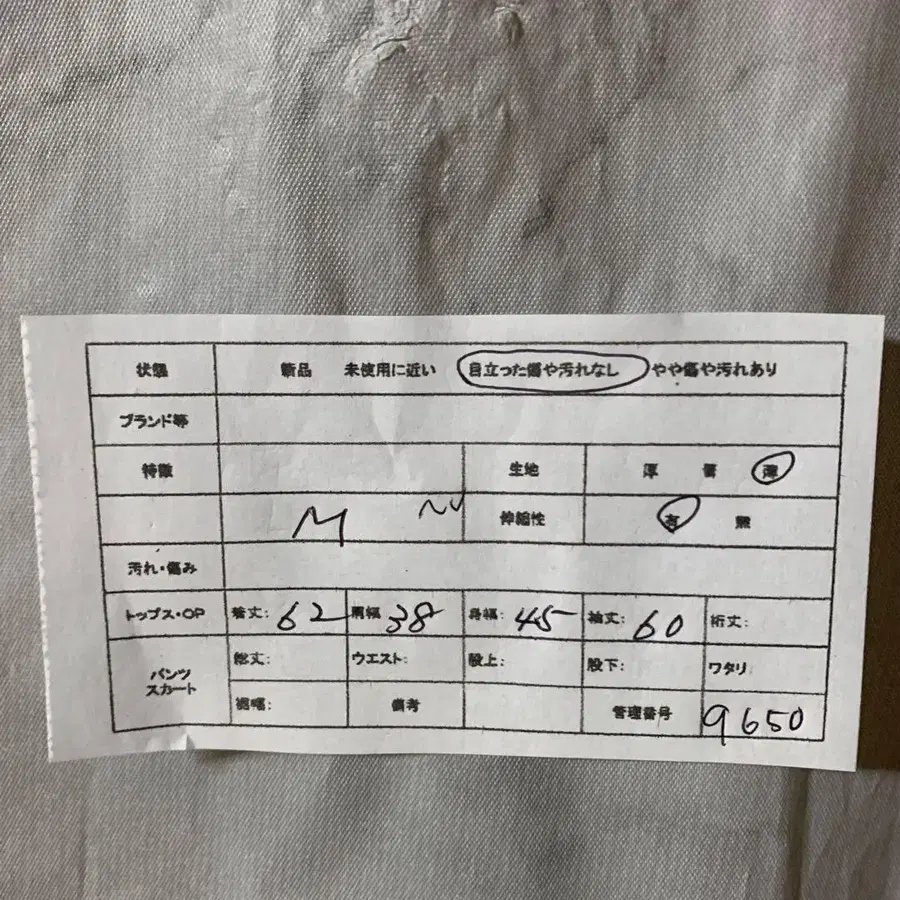 状態 新品 未使用に近い 目立った傷や汚れなし やや傷や汚れあり
ブランド等
特徴 生地 厚 普 薄
M 伸縮性 有 無
汚れ・傷み
トップス・OP 着丈: 62 肩幅 38 身幅: 45 袖丈: 60 裄丈:
パンツ スカート 総丈: ウエスト: 股上: 股下: ワタリ:
裾幅: 備考 管理番号 9650